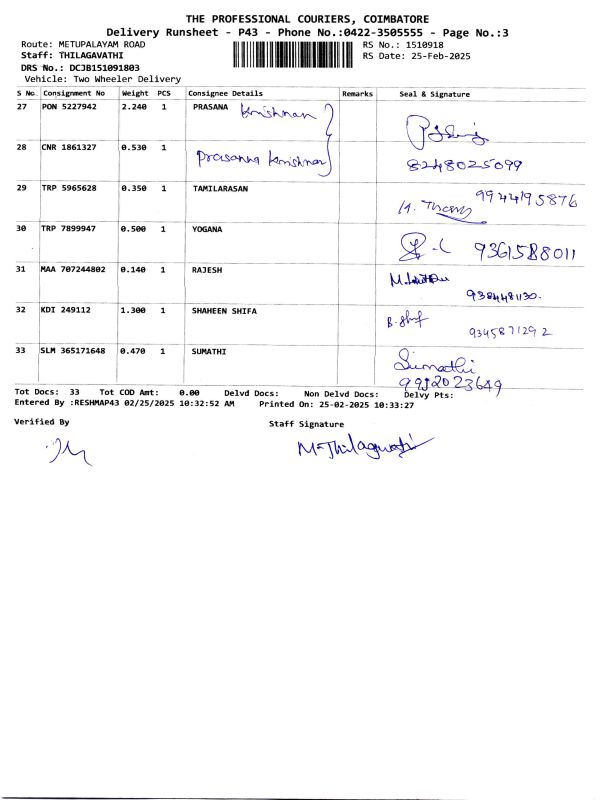 THE PROFESSIONAL COURIERS, COIMBATORE
Delivery Runsheet - P43 - Phone No.:0422-3505555 - Page No.:3
Route: METUPALAYAM ROAD RS No.: 1510918
Staff: THILAGAVATHI RS Date: 25-Feb-2025
DRS No.: DCJB151091803
Vehicle: Two Wheeler Delivery
S No. Consignment No Weight PCS Consignee Details Remarks Seal & Signature
27 PON 5227942 2.240 1 PRASANA Krishnan
28 CNR 1861327 0.530 1 Prasanna Krishnan 8248025099
29 TRP 5965628 0.350 1 TAMILARASAN 9944195876
30 TRP 7899947 0.500 1 YOGANA 9361588011
31 MAA 707244802 0.140 1 RAJESH 9384481130.
32 KDI 249112 1.300 1 SHAHEEN SHIFA 9345871292
33 SLM 365171648 0.470 1 SUMATHI Sumathi
9952023649
Tot Docs: 33 Tot COD Amt: 0.00 Delvd Docs: Non Delvd Docs: Delvy Pts:
Entered By :RESHMAP43 02/25/2025 10:32:52 AM Printed On: 25-02-2025 10:33:27
Verified By Staff Signature
M-Thilagavathi